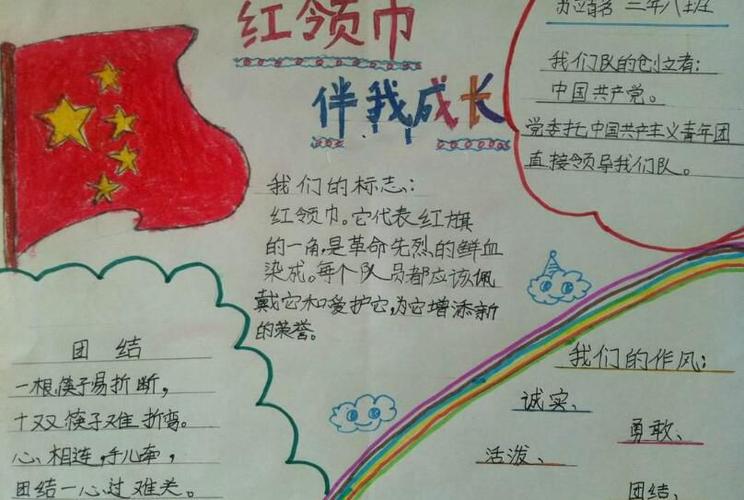 红领巾
伴我成长
三年八班
我们队的创立者：
中国共产党。
党委托中国共产主义青年团
直接领导我们队。
我们的标志：
红领巾。它代表红旗
的一角，是革命先烈的鲜血
染成。每个队员都应该佩
戴它和爱护它，为它增添新
的荣誉。
团结
一根筷子易折断，
十双筷子难折弯。
心相连，手儿牵，
团结一心过难关。
我们的作风：
诚实、
勇敢、
活泼、
团结、